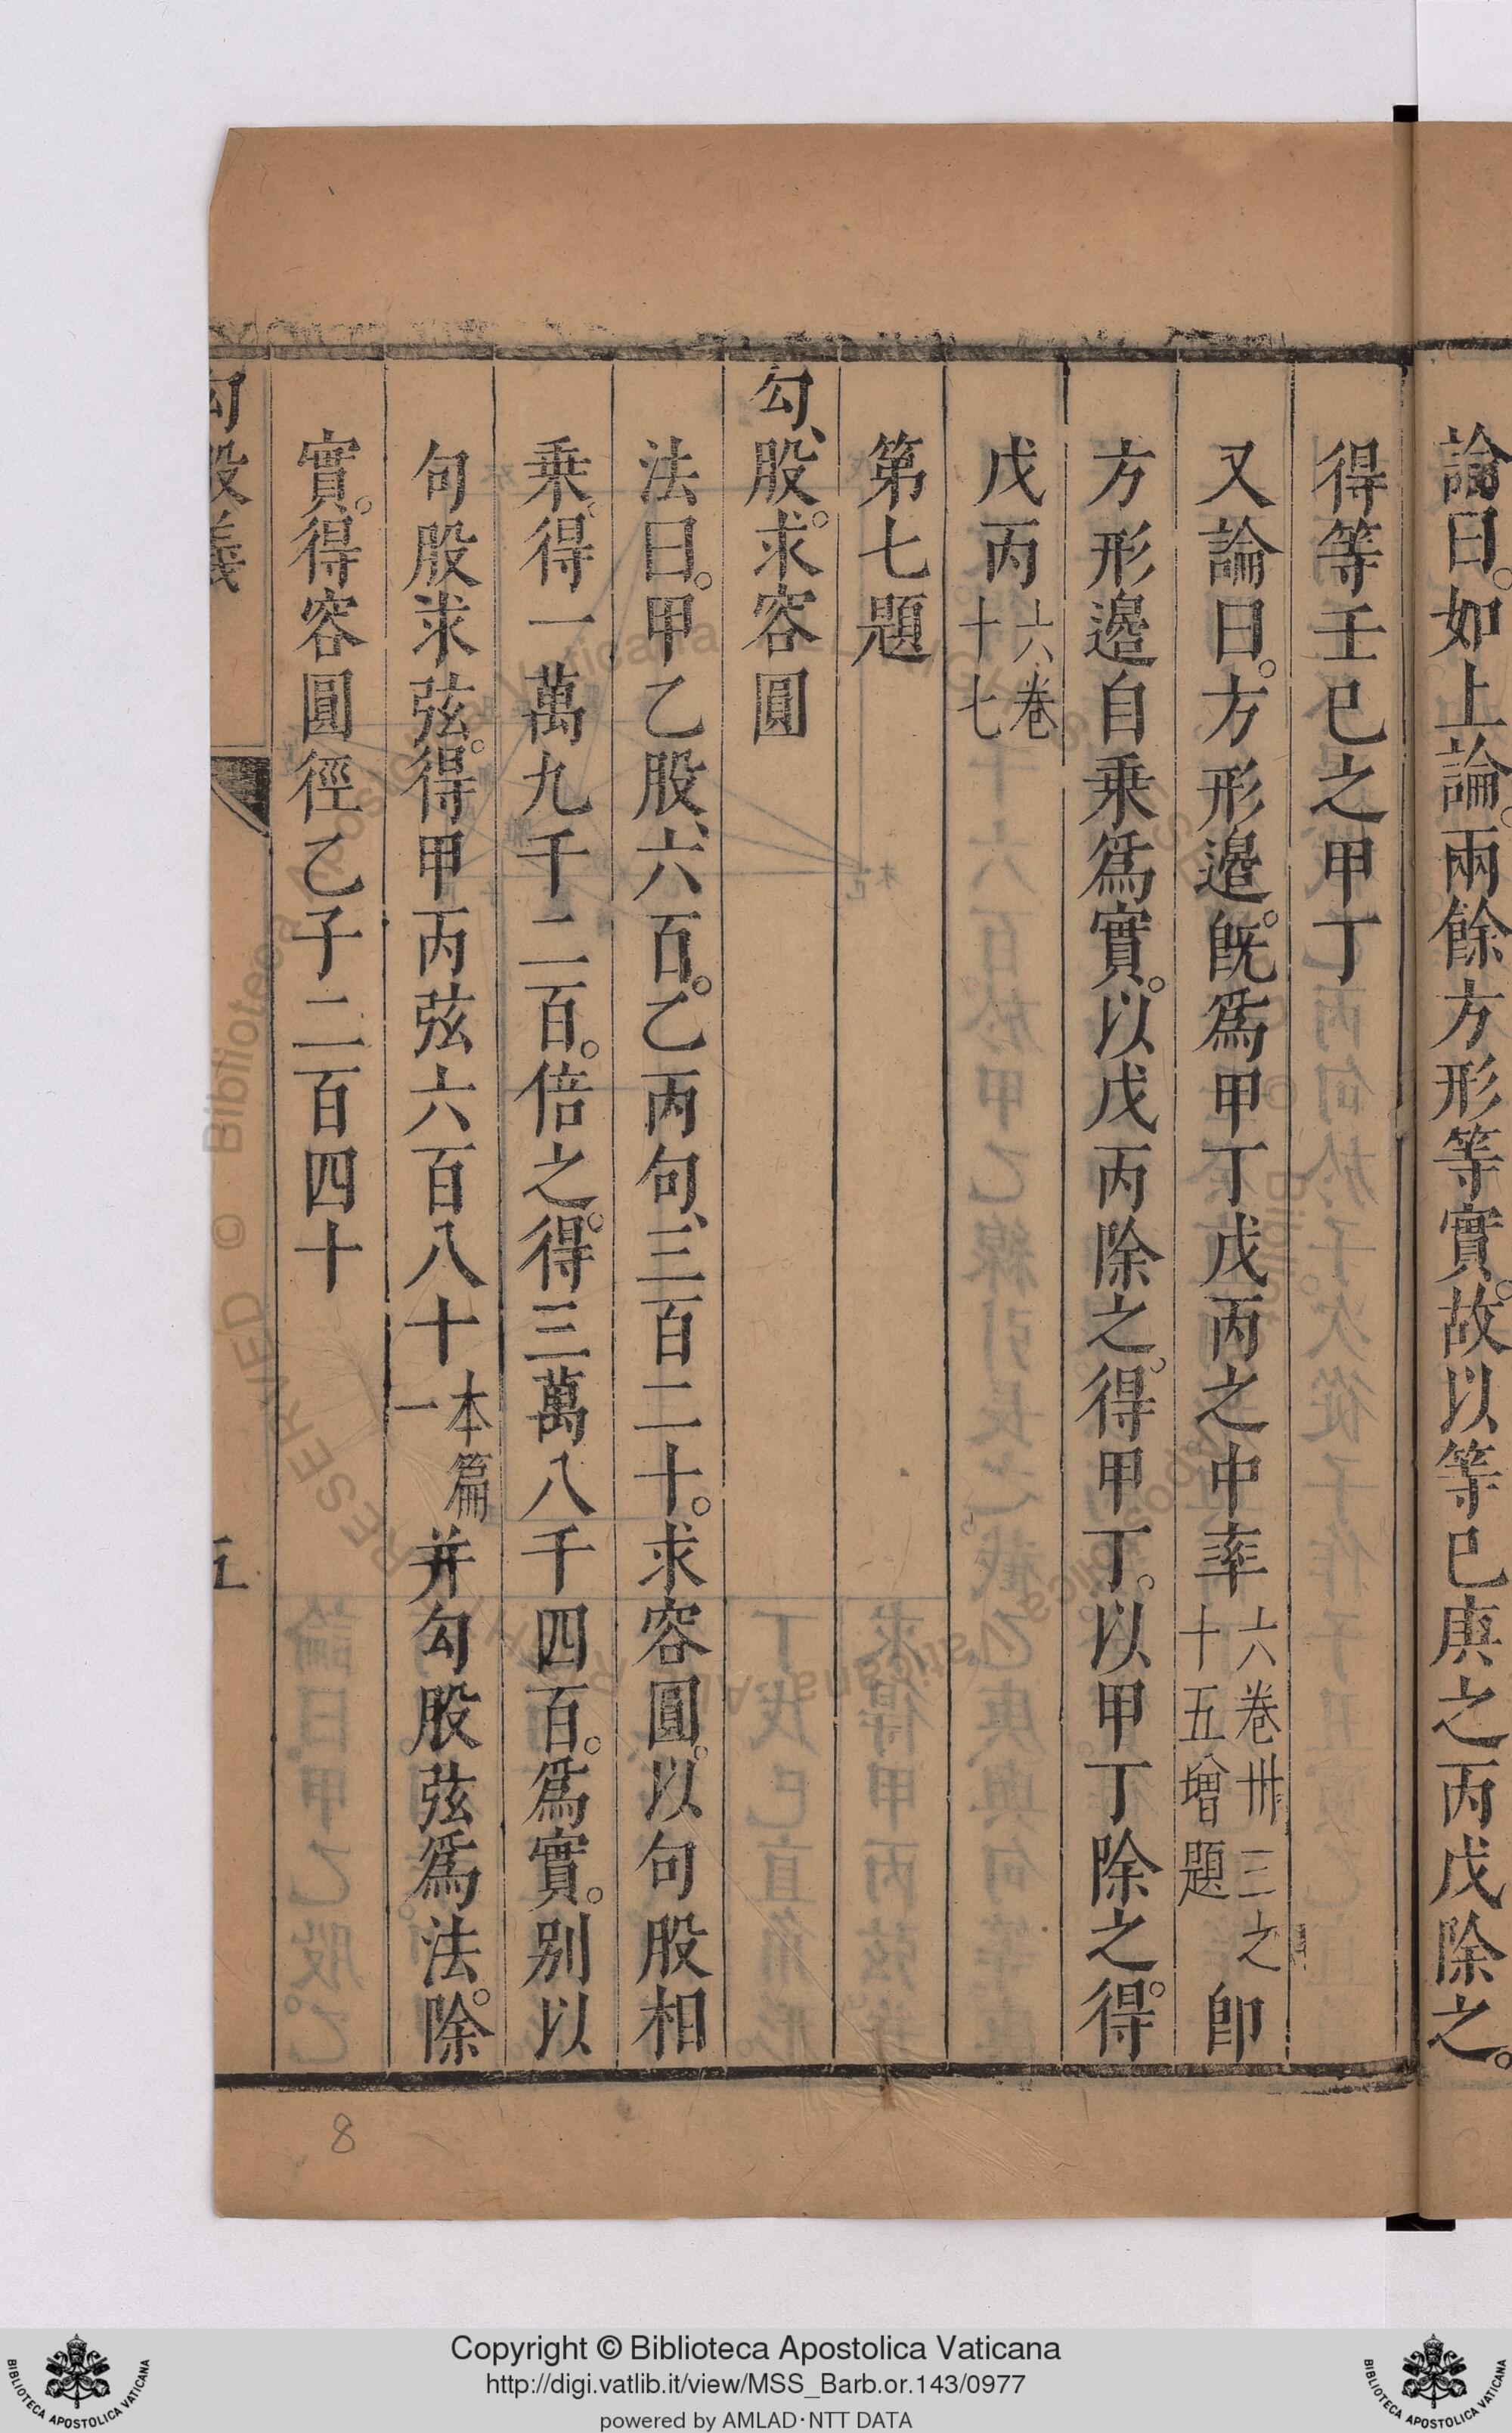 論曰。如上論。兩餘方形等實。故以等己庚之丙戊除之。
得等壬己之甲丁
又論曰。方形邉。既爲甲丁丁戊丙之中率六卷卅三之十五增題即
方形邊自乗爲實。以戊丙除之。得甲丁。以甲丁除之。得
戊丙六卷十七
第七題
勾、股。求容圓
法曰。甲乙股、六百。乙丙句、三百二十。求容圓。以句股相
乗。得一萬九千二百。倍之。得三萬八千四百。爲實。别以
句股求弦。得甲丙弦六百八十本篇一并勾股弦爲法。除
實。得容圓徑乙子二百四十
勾股義
五
8
Copyright © Biblioteca Apostolica Vaticana
http://digi.vatlib.it/view/MSS_Barb.or.143/0977
powered by AMLAD·NTT DATA
BIBLIOTECA APOSTOLICA VATICANA
BIBLIOTECA APOSTOLICA VATICANA